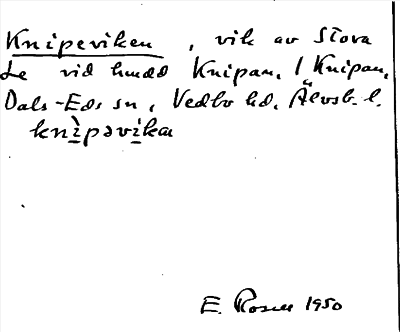 Knipeviken, vik av Stora
Le vid hmdd Knipan, / Knipan,
Dals-Eds sn, Vedbo hd, Älvsb. l.
knìpəvìkɑ
E. Rosell 1950